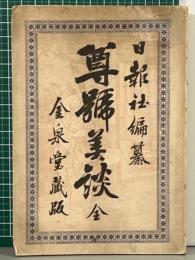 日報社編纂
尊號美談 全
金泉堂藏版